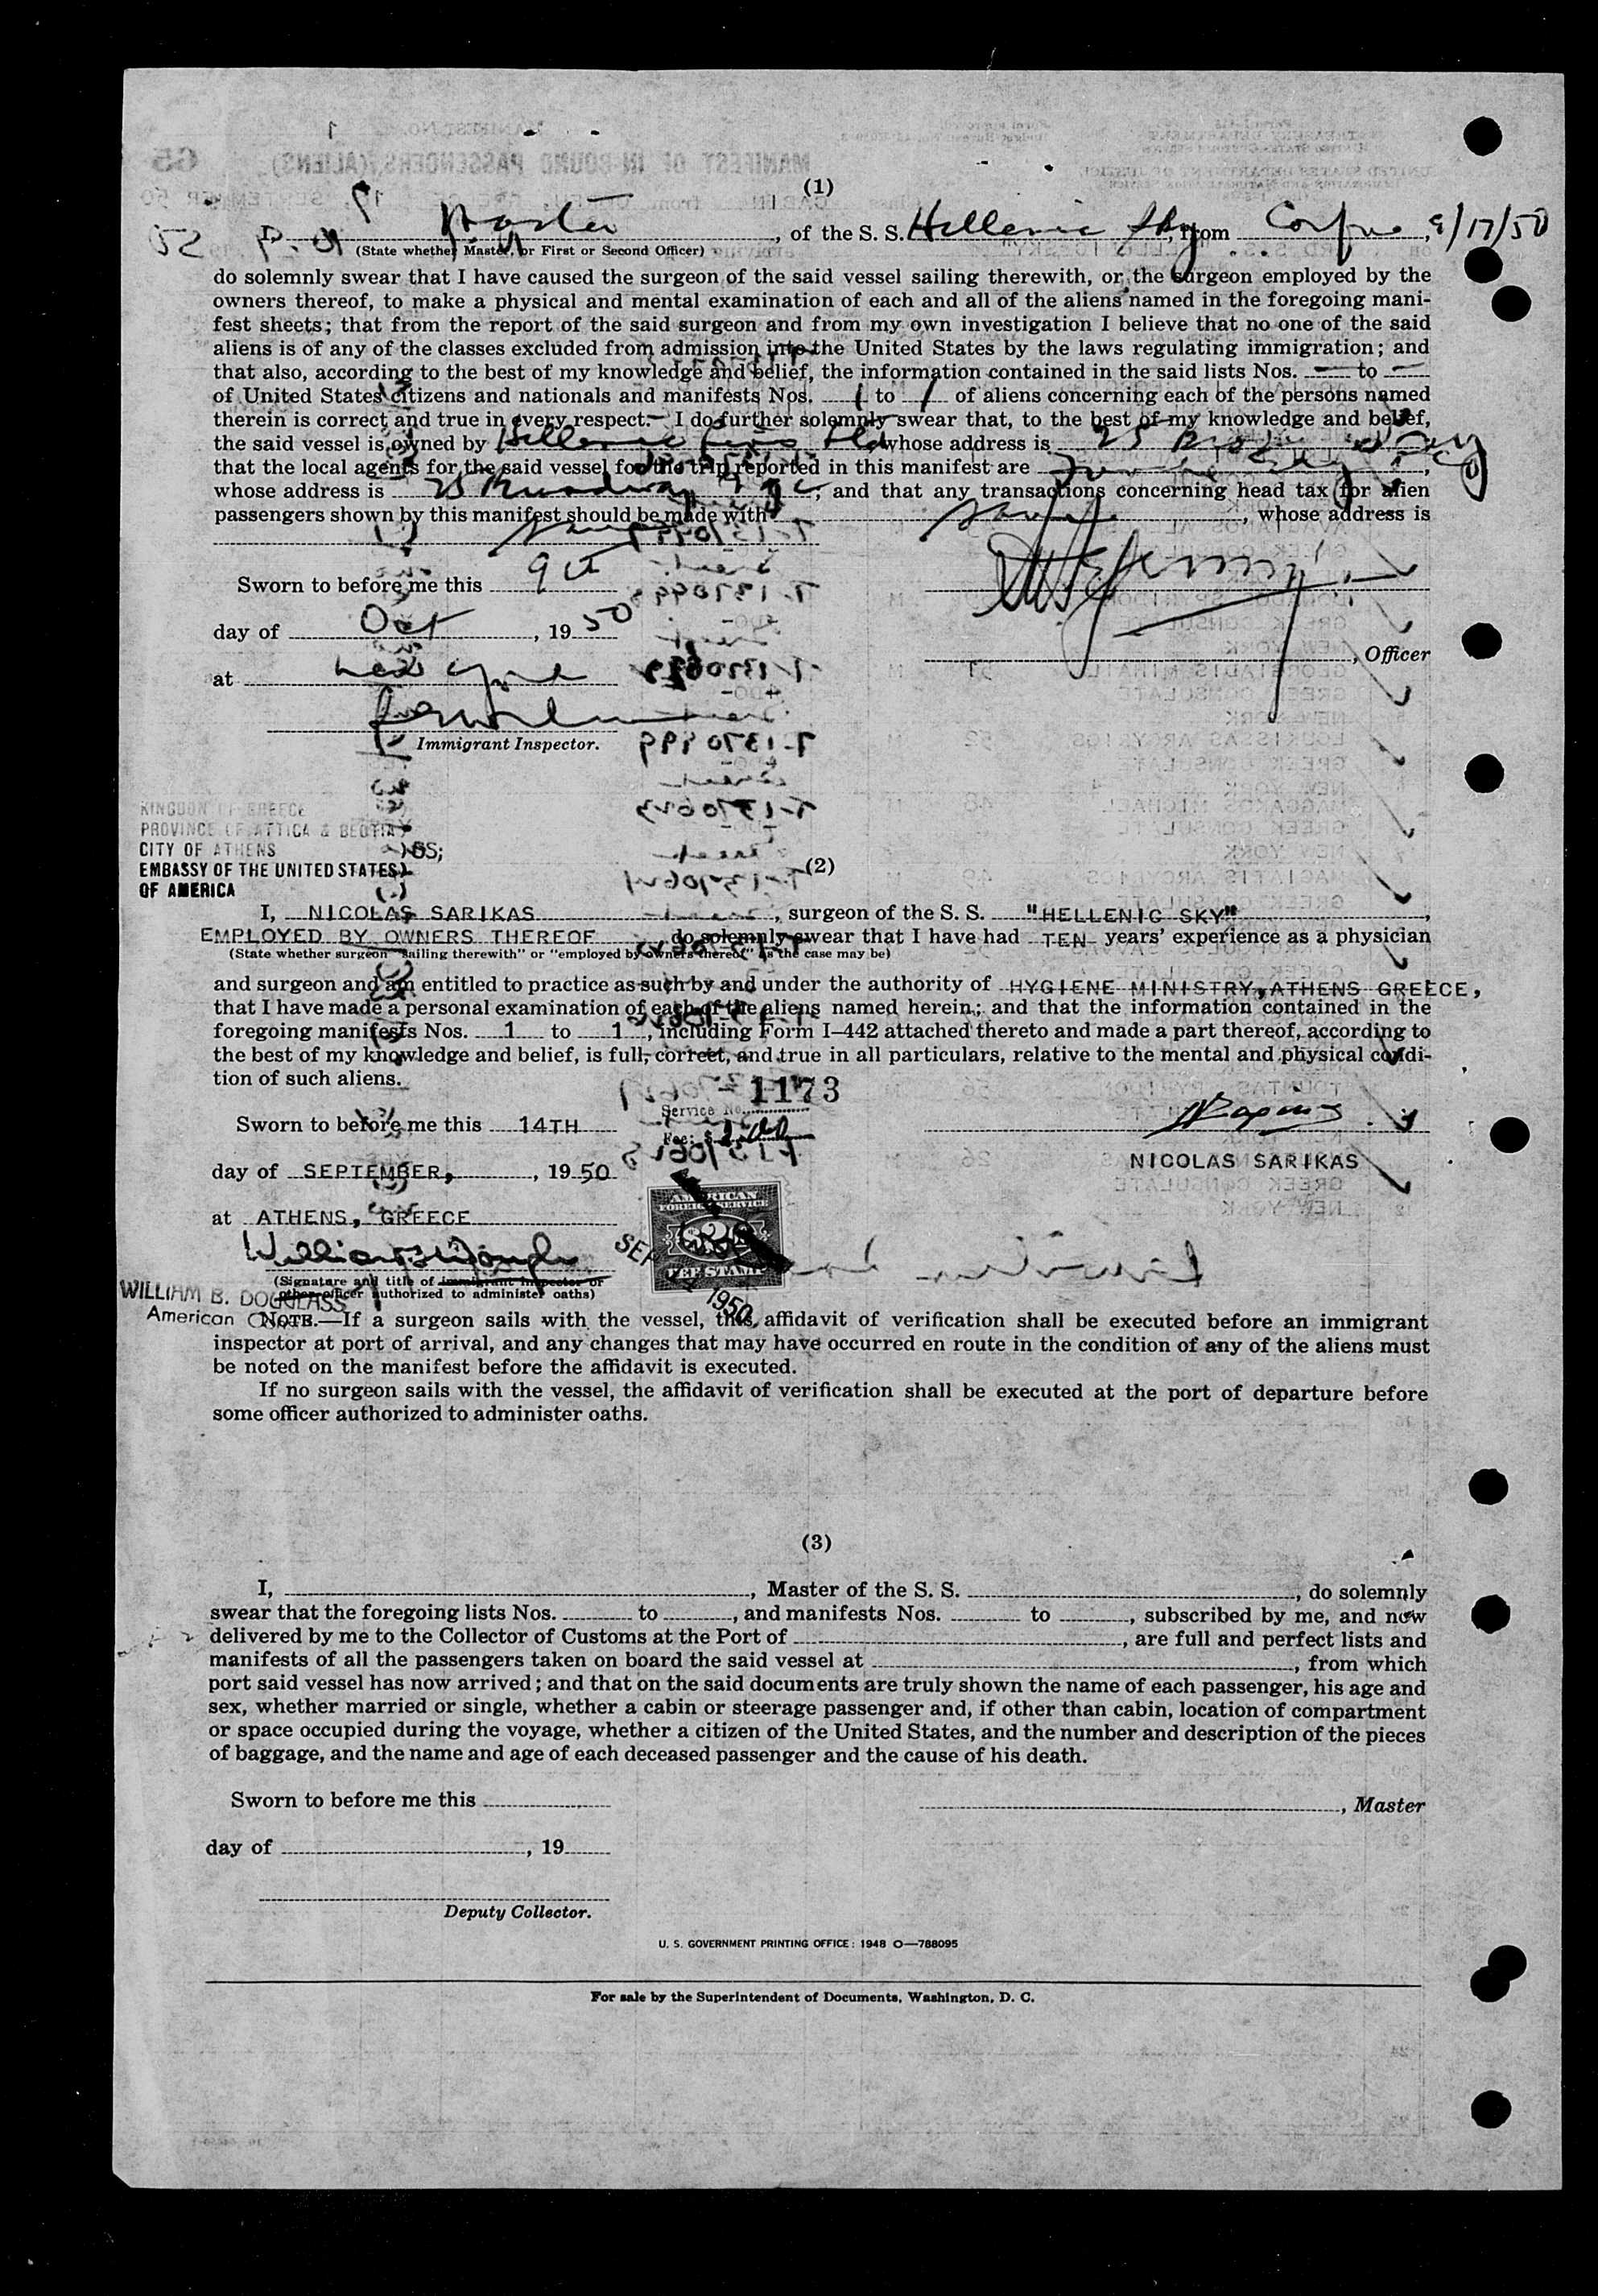 (1)
I, Master, of the S. S. Hellenic Sky, from Corfu, 9/17/50
52
(State whether Master, or First or Second Officer)
do solemnly swear that I have caused the surgeon of the said vessel sailing therewith, or the surgeon employed by the
owners thereof, to make a physical and mental examination of each and all of the aliens named in the foregoing mani-
fest sheets; that from the report of the said surgeon and from my own investigation I believe that no one of the said
aliens is of any of the classes excluded from admission into the United States by the laws regulating immigration; and
that also, according to the best of my knowledge and belief, the information contained in the said lists Nos. — to —
of United States citizens and nationals and manifests Nos. 1 to 1 of aliens concerning each of the persons named
therein is correct and true in every respect. I do further solemnly swear that, to the best of my knowledge and belief,
the said vessel is owned by Hellenic Lines Ltd whose address is 25 Broadway
that the local agents for the said vessel for the trip reported in this manifest are
whose address is 25 Broadway N Y C, and that any transactions concerning head tax for alien
passengers shown by this manifest should be made with same, whose address is
same
Sworn to before me this 9th
day of Oct, 19 50
, Officer
at New York
Immigrant Inspector.
KINGDOM OF GREECE
PROVINCE OF ATTICA & BEOTIA
CITY OF ATHENS )SS;
EMBASSY OF THE UNITED STATES)
OF AMERICA
(2)
I, NICOLAS SARIKAS, surgeon of the S. S. "HELLENIC SKY",
EMPLOYED BY OWNERS THEREOF do solemnly swear that I have had TEN years' experience as a physician
(State whether surgeon "sailing therewith" or "employed by owners thereof" as the case may be)
and surgeon and am entitled to practice as such by and under the authority of HYGIENE MINISTRY, ATHENS GREECE,
that I have made a personal examination of each of the aliens named herein; and that the information contained in the
foregoing manifests Nos. 1 to 1, including Form I–442 attached thereto and made a part thereof, according to
the best of my knowledge and belief, is full, correct, and true in all particulars, relative to the mental and physical condi-
tion of such aliens.
1173
Service No.
Fee: $ 2.00
Sworn to before me this 14TH
NICOLAS SARIKAS
day of SEPTEMBER, , 19 50
at ATHENS, GREECE
AMERICAN
FOREIGN SERVICE
$2
FEE STAMP
SEP 1950
William B. Douglass
(Signature and title of immigrant inspector or
other officer authorized to administer oaths)
WILLIAM B. DOUGLASS
American
NOTE.—If a surgeon sails with the vessel, this affidavit of verification shall be executed before an immigrant
inspector at port of arrival, and any changes that may have occurred en route in the condition of any of the aliens must
be noted on the manifest before the affidavit is executed.
If no surgeon sails with the vessel, the affidavit of verification shall be executed at the port of departure before
some officer authorized to administer oaths.
(3)
I, , Master of the S. S. , do solemnly
swear that the foregoing lists Nos. to , and manifests Nos. to , subscribed by me, and now
delivered by me to the Collector of Customs at the Port of , are full and perfect lists and
manifests of all the passengers taken on board the said vessel at , from which
port said vessel has now arrived; and that on the said documents are truly shown the name of each passenger, his age and
sex, whether married or single, whether a cabin or steerage passenger and, if other than cabin, location of compartment
or space occupied during the voyage, whether a citizen of the United States, and the number and description of the pieces
of baggage, and the name and age of each deceased passenger and the cause of his death.
Sworn to before me this
, Master
day of , 19
Deputy Collector.
U. S. GOVERNMENT PRINTING OFFICE: 1948 O—788095
For sale by the Superintendent of Documents, Washington, D. C.